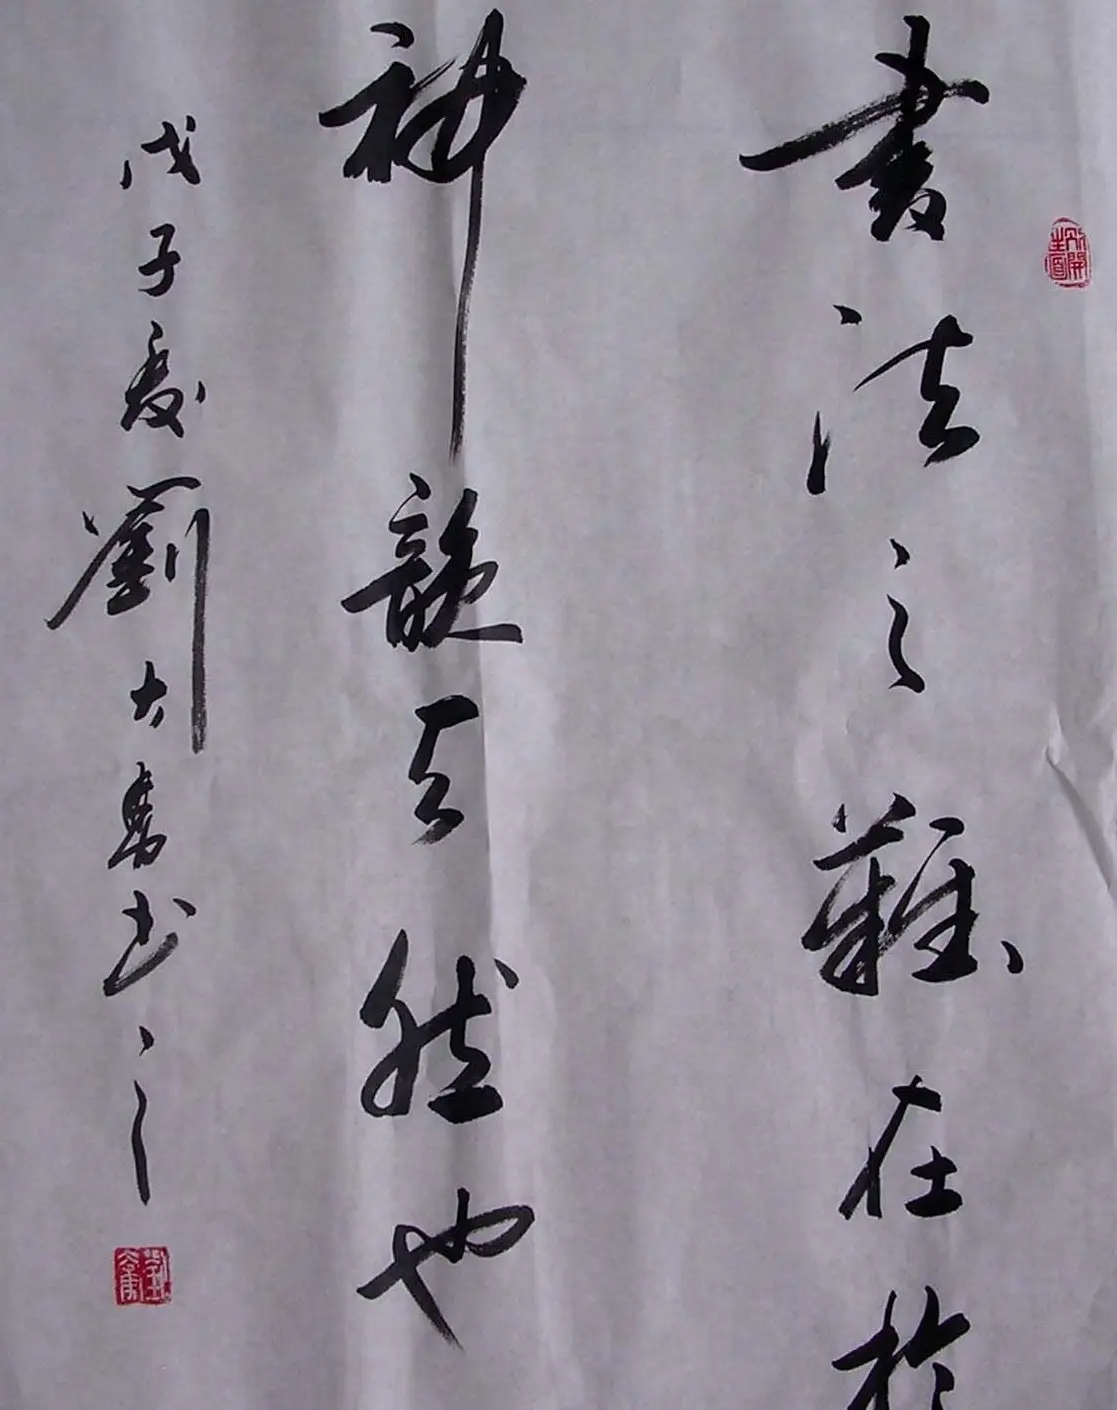 書法之難在於
神韻天然也
戊子夏劉大勇書之